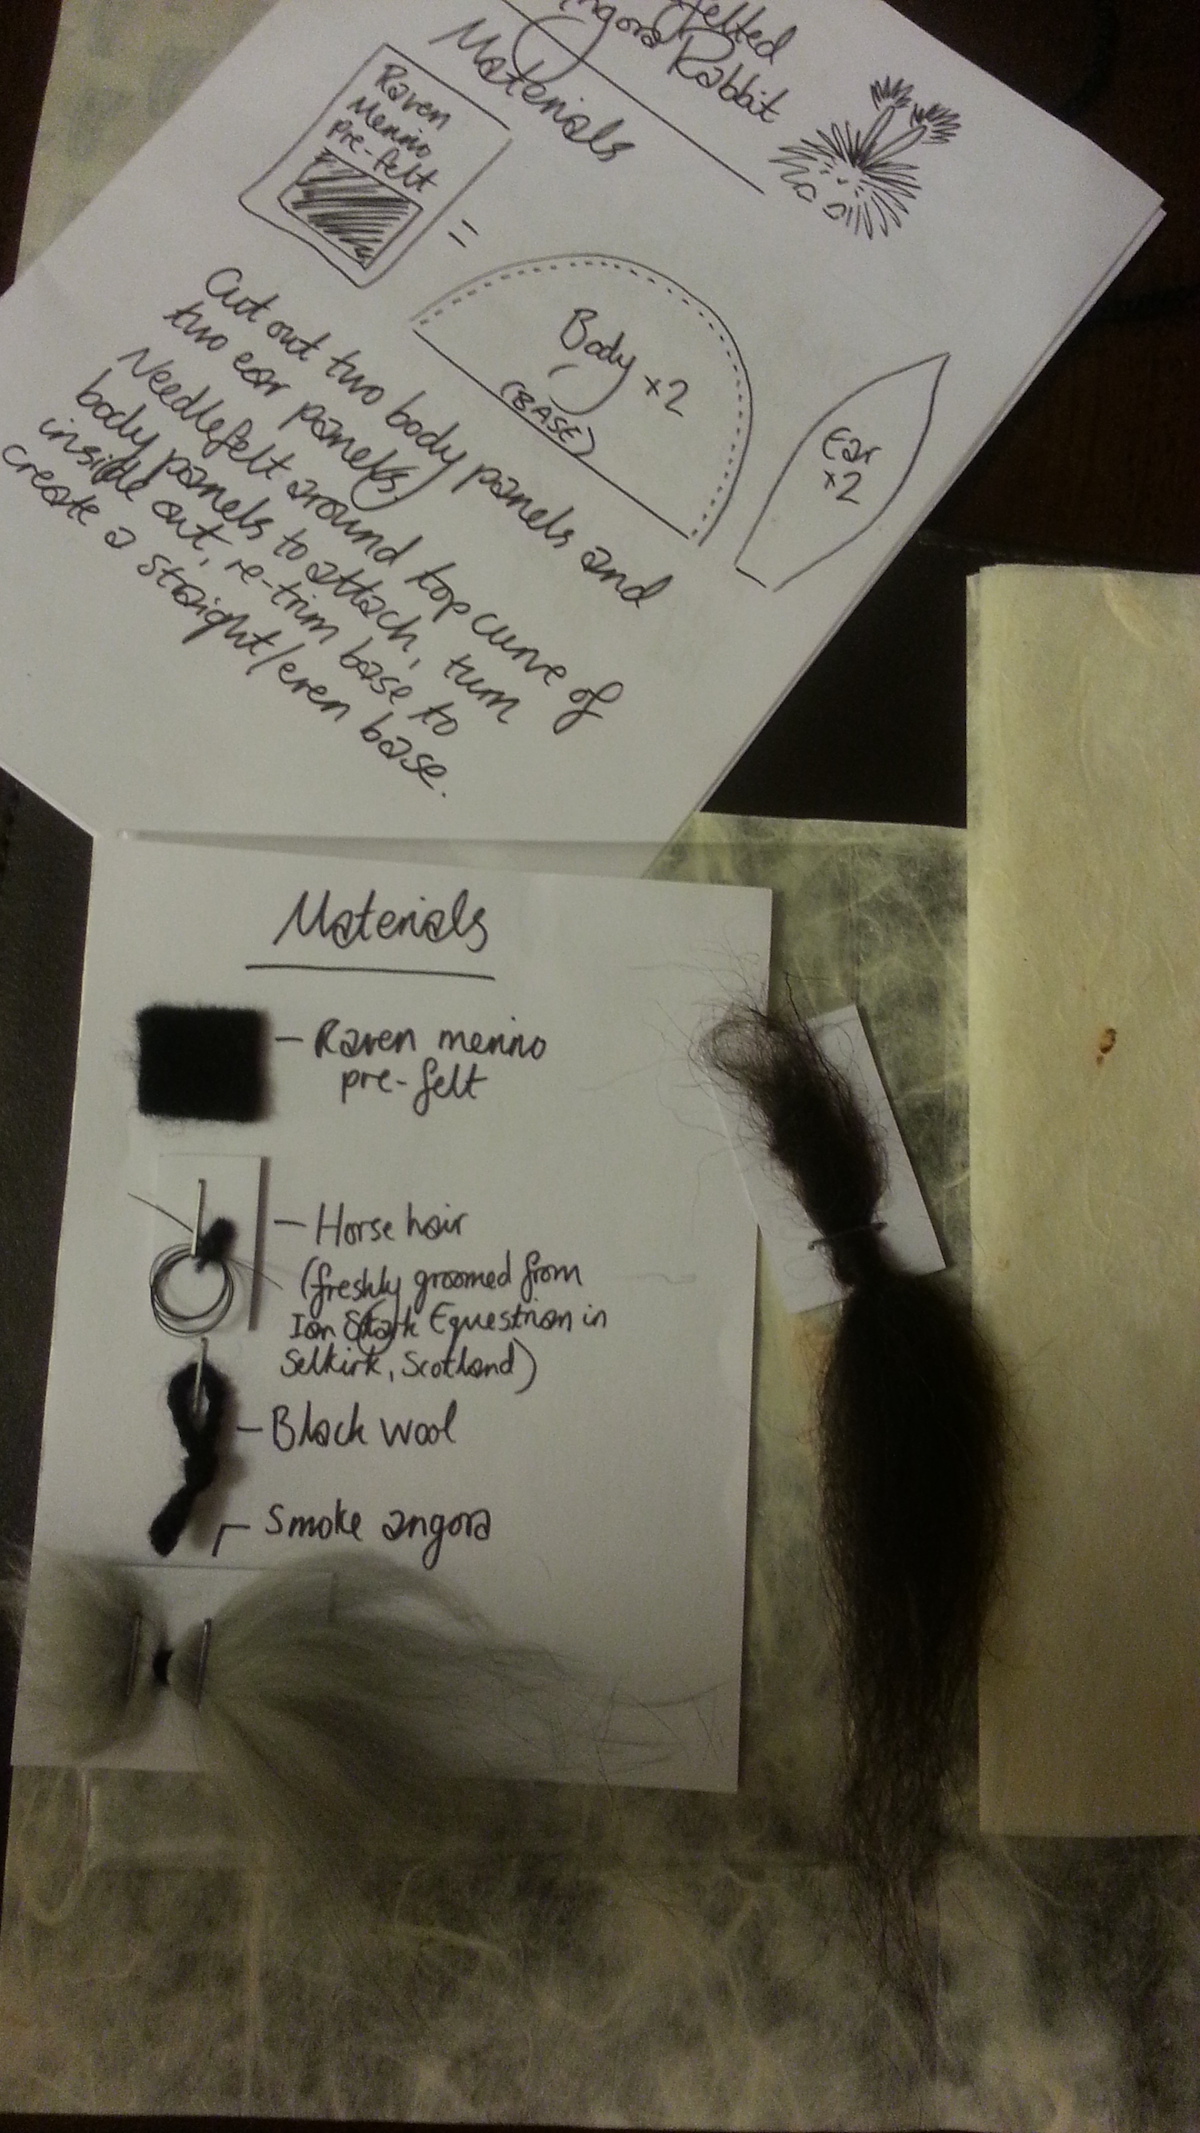 felted
Angora Rabbit
Materials
Raven
Merino
pre-felt
=
Body x2
(BASE)
Ear
x2
Cut out two body panels and
two ear panels.
Needlefelt around top curve of
body panels to attach, turn
inside out, re-trim base to
create a straight/even base.
Materials
– Raven merino
pre-felt
– Horse hair
(freshly groomed from
Ian Stark Equestrian in
Selkirk, Scotland)
– Black wool
Smoke angora